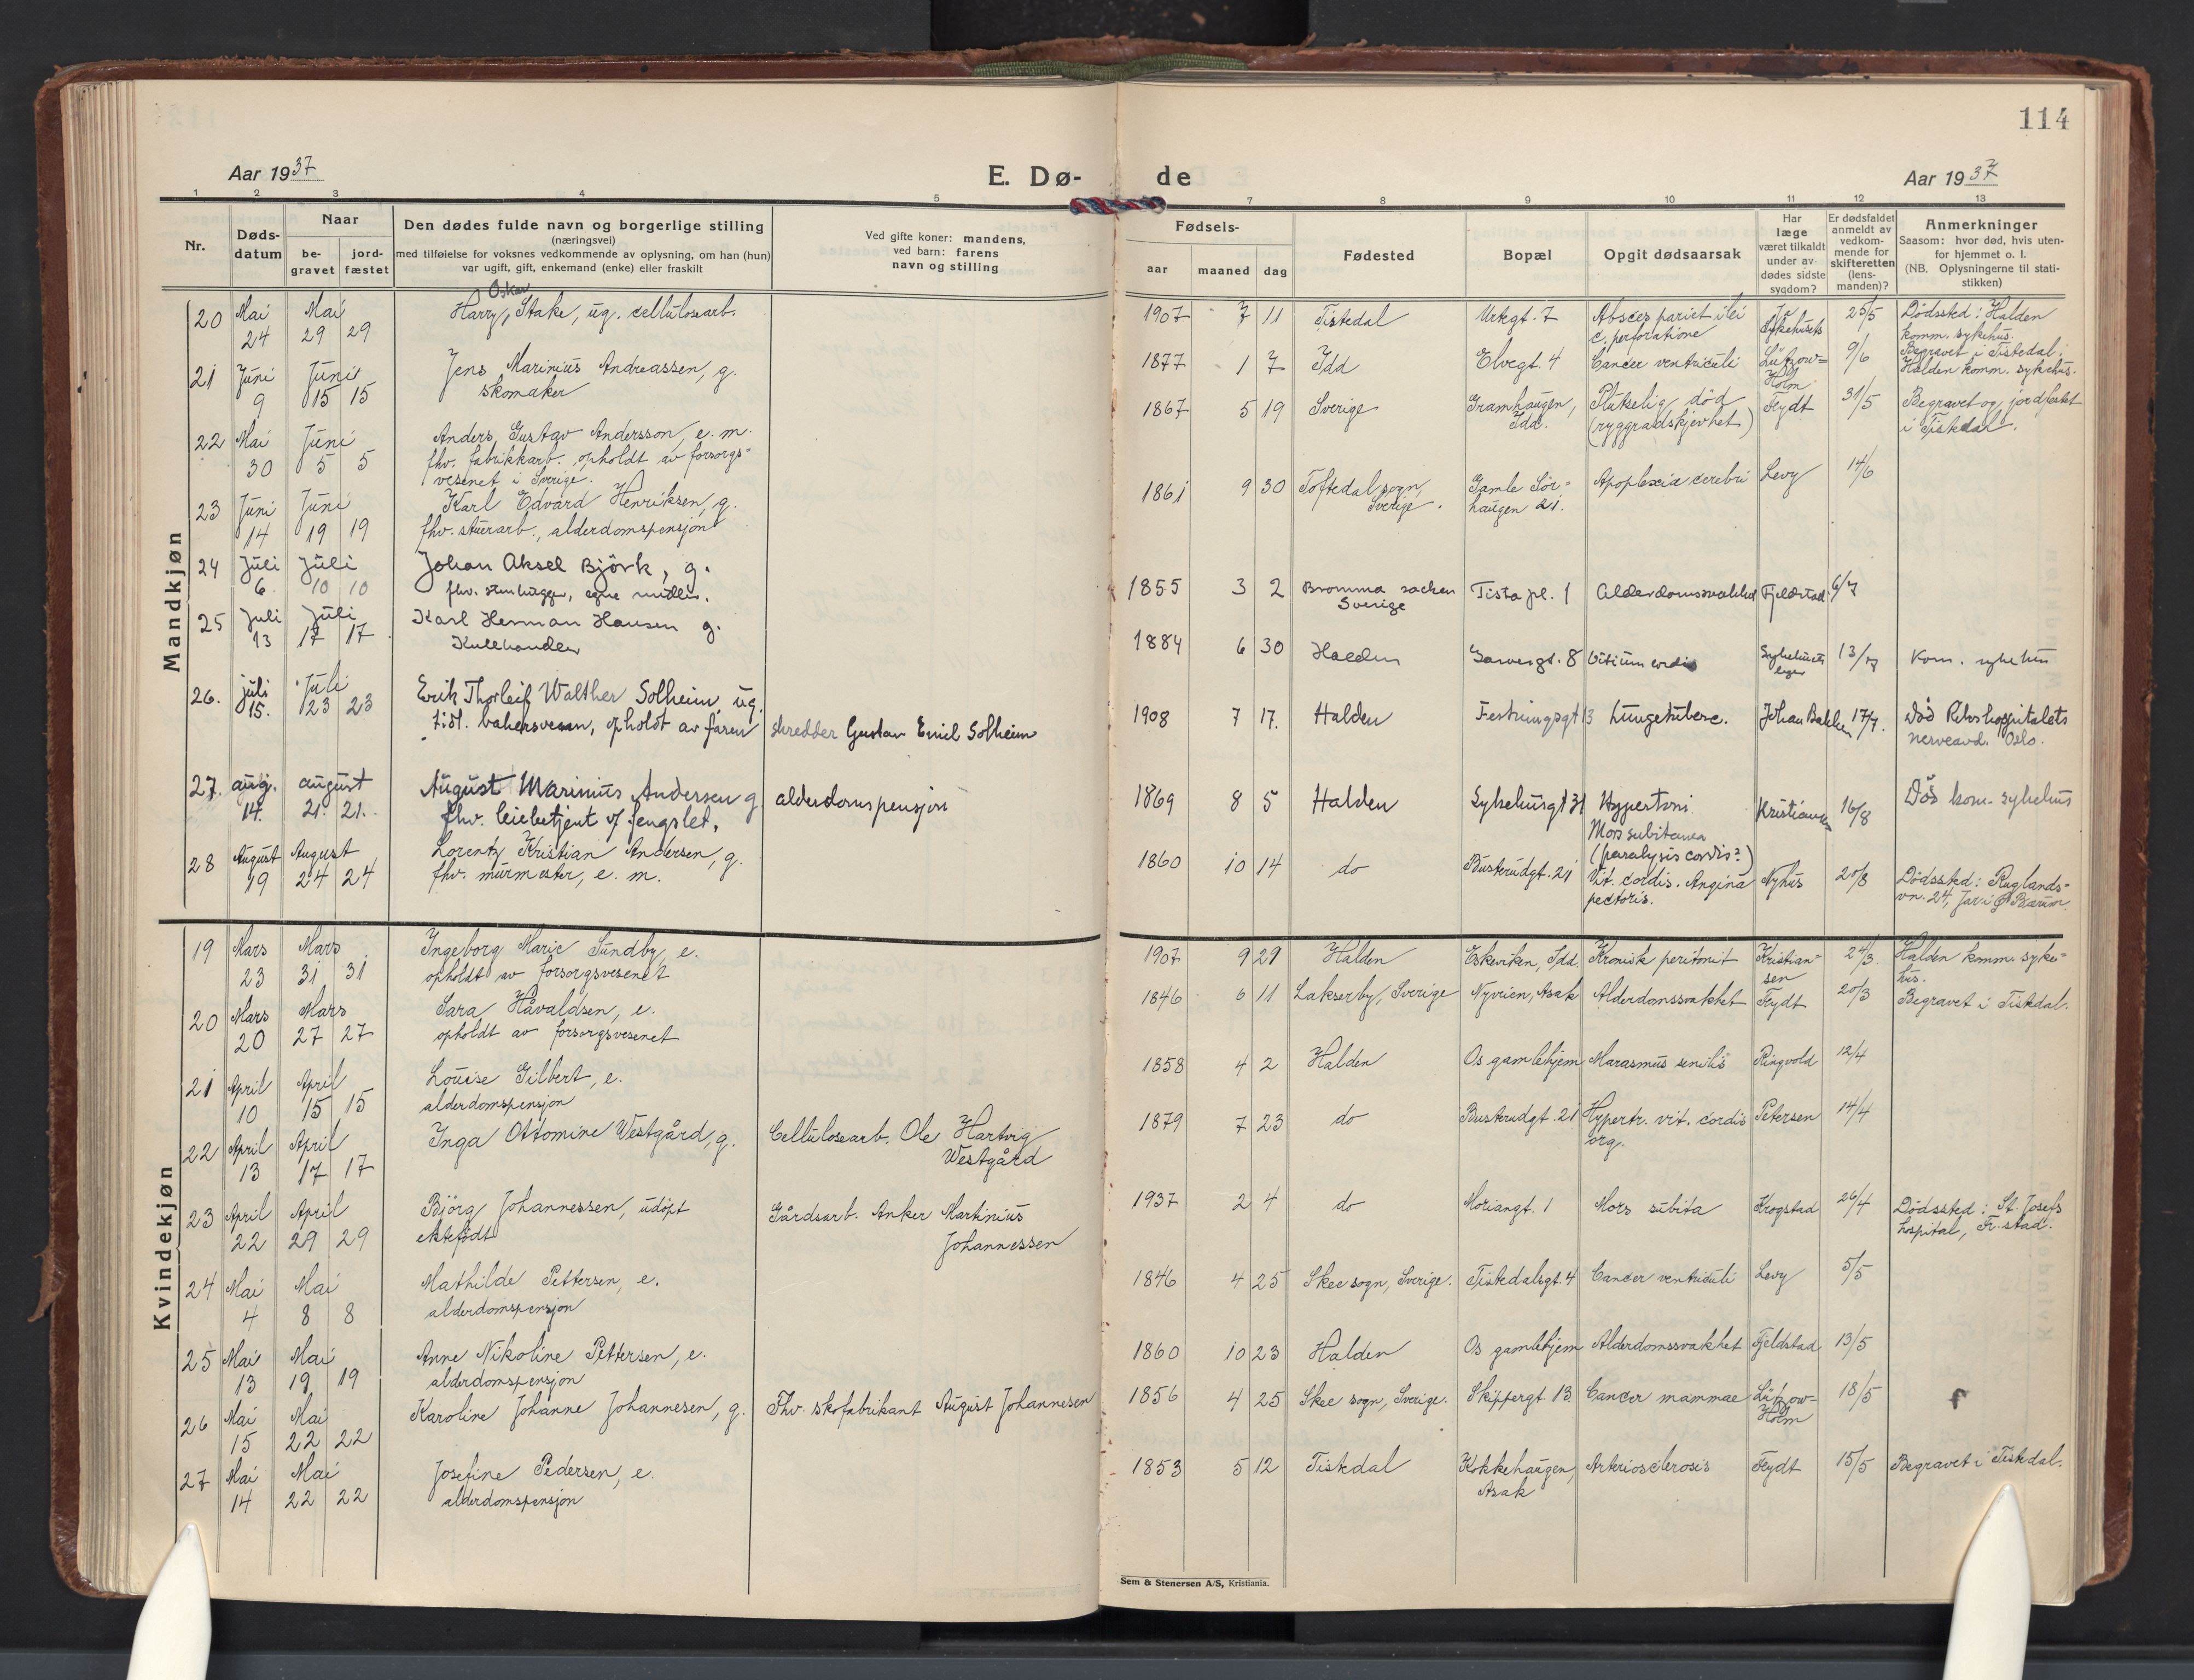 114
Aar 1937
E. Dø-
de
Aar 1937
1 2 3 4 5 7 8 9 10 11 12 13
Nr.
Døds-
datum
Naar
be-
gravet
jord-
fæstet
Den dødes fulde navn og borgerlige stilling
(næringsvei)
med tilføielse for voksnes vedkommende av oplysning, om han (hun)
var ugift, gift, enkemand (enke) eller fraskilt
Ved gifte koner: mandens,
ved barn: farens
navn og stilling
Fødsels-
aar maaned dag
Fødested
Bopæl
Opgit dødsaarsak
Har
læge
været tilkaldt
under av-
dødes sidste
sygdom?
Er dødsfaldet
anmeldt av
vedkom-
mende for
skifteretten
(lens-
manden)?
Anmerkninger
Saasom: hvor død, hvis uten-
for hjemmet o. l.
(NB. Oplysningerne til stati-
stikken)
Mandkjøn
20 Mai 24 Mai 29 29
Oskar
Harry, Stake, ug. cellulosearb.
1907 7 11 Tistedal Urtegt. 7
Absces pariet ilei
c. perforatione
Ja
Sykehusets
25/5
Dødssted: Halden
komm. sykehus.
Begravet i Tistedal.
21 Juni 9 Juni 15 15
Jens Marinius Andreassen, g.
skomaker
1877 1 7 Idd Elvegt. 4 Cancer ventriculi
Lützow=
Holm
9/6
Halden komm. sykehus.
22 Mai 30 Juni 5 5
Anders Gustav Andersson, e. m.
fhv. fabrikkarb. opholdt av forsorgs=
vesenet i Sverige.
1867 5 19 Sverige
Gramhaugen,
Idd.
Plutselig død
(ryggradskjevhet)
Feydt 31/5
Begravet og jordfestet
i Tistedal.
23 Juni 14 Juni 19 19
Karl Edvard Henriksen, g.
fhv. stuerarb., alderdomspensjon
1861 9 30
Toftedal sogn,
Sverige.
Gamle Sør=
haugen 21.
Apoplexia cerebri Levy 14/6
24 Juli 6 Juli 10 10
Johan Aksel Björk, g.
fhv. stenhugger, egne midler.
1855 3 2
Bromma socken
Sverige
Tista pl. 1 Alderdomssvakhet Fjeldstad 6/7
25 Juli 13 Juli 17 17
Karl Herman Hansen g.
Kullhandler
1884 6 30 Halden Garvergt. 8 Vitium cordis
Sykehusets
leger
13/7 Kom. sykehus
26. juli 15. Juli 23 23
Erik Thorleif Walther Solheim, ug.
tidl. bakersvenn, opholdt av faren
skredder Gustav Emil Solheim
1908 7 17. Halden Festningsgt 13 Lungetuberc. Johan Bakken 17/7.
Død Rikshospitalets
nerveavd. Oslo.
27. aug. 14. august 21. 21.
August Marinius Andersen g
fhv. leiebetjent v/ fengslet,
alderdomspensjon
1869 8 5 Halden Sykehusgt 31 Hypertoni. Kristiansen 16/8 Død kom. sykehus
28 August 19 August 24 24
Lorentz Kristian Andersen, g.
fhv. murmester, e. m.
1860 10 14 do Busterudgt. 21
Mors subitanea
(paralysis cordis?)
Vit. cordis. Angina
pectoris.
Nyhus 20/8
Dødssted: Ruglands=
vn. 24, Jar i Ø. Bærum.
Kvindekjøn
19 Mars 23 Mars 31 31
Ingeborg Marie Sundby, e.
opholdt av forsorgsvesenet
1907 9 29 Halden Eskeviken, Idd. Kronisk peritonit
Kristian=
sen
24/3.
Halden komm. syke=
hus.
20 Mars 20 Mars 27 27
Sara Håvaldsen, e.
opholdt av forsorgsvesenet
1846 6 11 Lakserby, Sverige Nyvrien, Asak Alderdomssvakhet Feydt 20/3 Begravet i Tistedal.
21 April 10 April 15 15
Louise Gilbert, e.
alderdomspensjon
1858 4 2 Halden Os gamlehjem Marasmus senilis Ringvold 12/4
22 April 13 April 17 17
Inga Ottomine Westgård, g.
Cellulosearb. Ole Hartvig
Westgård
1879 7 23 do Busterudgt. 21
Hypertr. vit. cordis
org.
Petersen 14/4
23 April 22 April 29 29
Björg Johannessen, udöpt
ektefödt
Gårdsarb. Anker Martinius
Johannessen
1937 2 4 do Moriangt. 1 Mors subita Krogstad 26/4
Dödssted: St. Josefs
hospital, Fr.stad.
24 Mai 4 Mai 8 8
Mathilde Pettersen, e.
alderdomspensjon
1846 4 25 Skee sogn, Sverige. Tistedalsgt. 4 Cancer ventriculi Levy 5/5
25 Mai 13 Mai 19 19
Anne Nikoline Pettersen, e.
alderdomspensjon
1860 10 23 Halden Os gamlehjem Alderdomssvakhet Fjeldstad 13/5
26 Mai 15 Mai 22 22
Karoline Johanne Johannesen, g.
Fhv. skofabrikant August Johannesen
1856 4 25 Skee sogn, Sverige. Skippergt. 13. Cancer mammae
Lützow-
Holm
18/5
27 Mai 14 Mai 22 22
Josefine Pedersen, e.
alderdomspensjon
1853 5 12 Tistedal
Kokkehaugen,
Asak
Arteriosclerosis Feydt 15/5 Begravet i Tistedal.
Sem & Stenersen A/S, Kristiania.